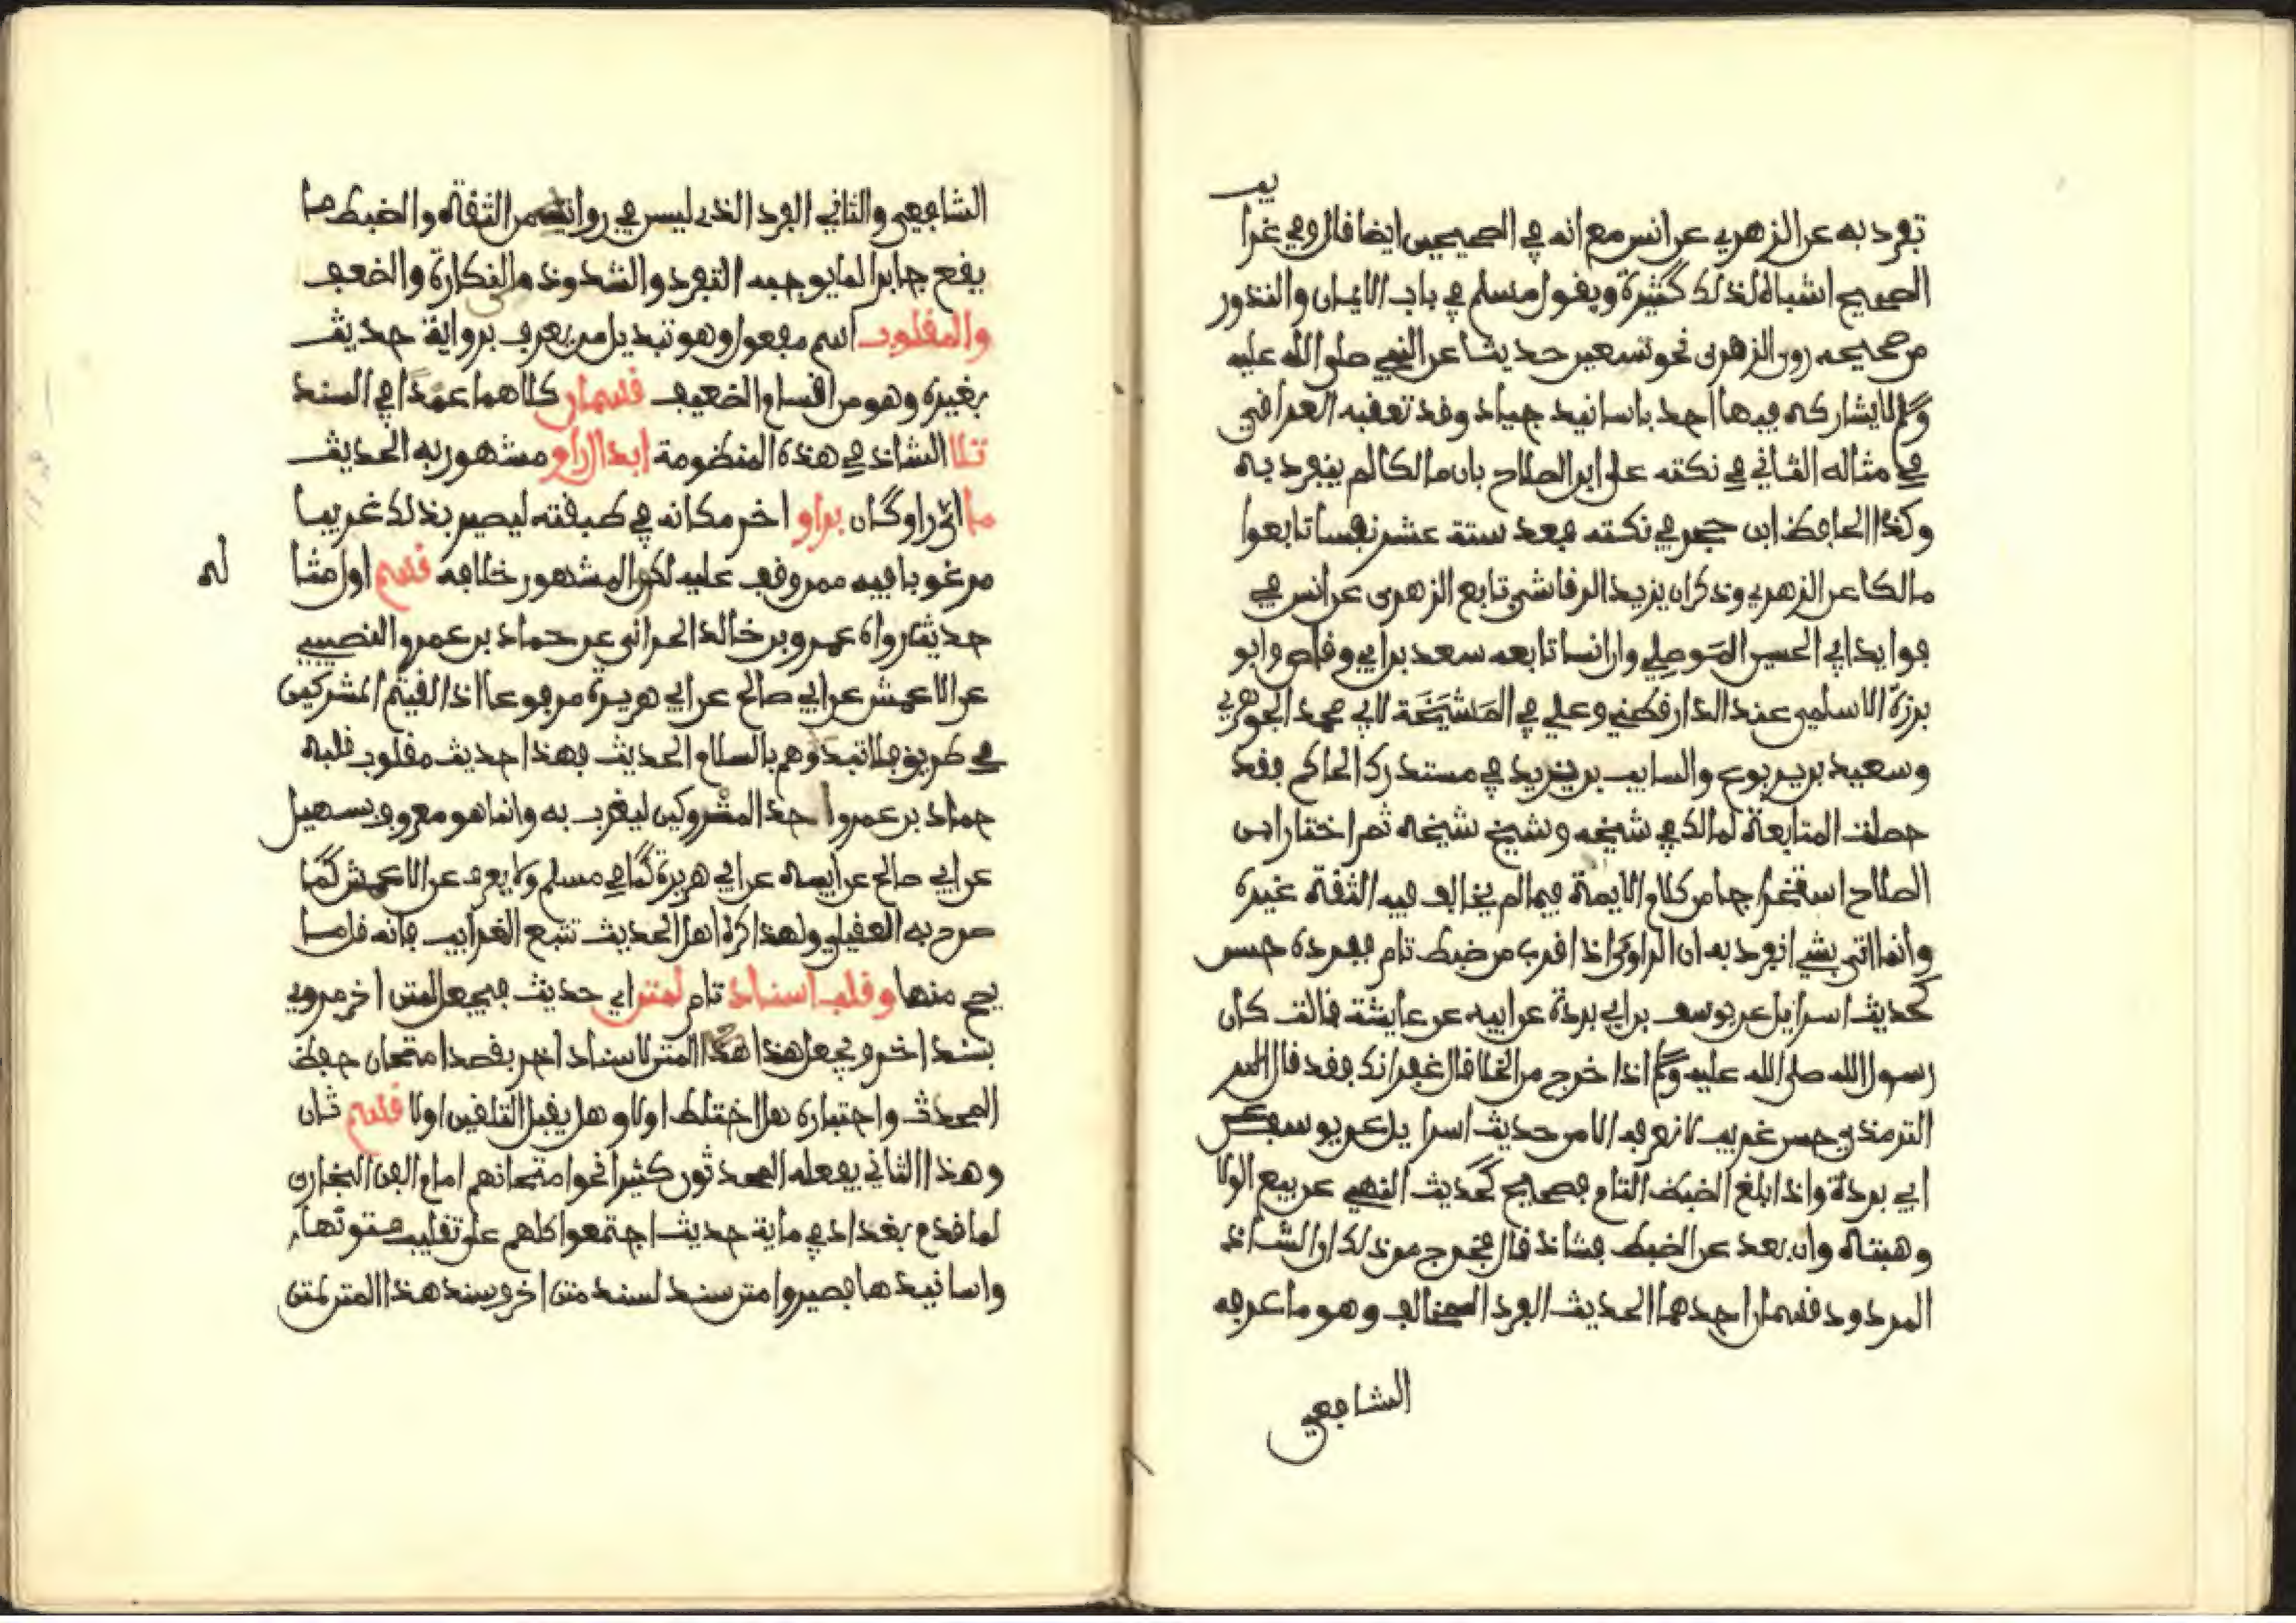 تفرد به عن الزهري عن انس مع انه في الصحيحين ايضا قال وفي غرا
يب
الصحيح اشباه لذلك كثيرة ويقول مسلم في باب الايمان والنذور
من صحيحه روى الزهرى نحو تسعين حديثا عن النبي صلى الله عليه
وسلم لا يشاركه فيها احد باسانيد جياد وقد تعقبه العراقي
في مثاله الثاني في نكته على ابن الصلاح بان مالكا لم ينفرد به
وكذا الحافظ ابن حجر في نكته فعد ستة عشر نفسا تابعوا
مالكا عن الزهري وذكر ان يزيد الرقاشي تابع الزهرى عن انس في
فوايد ابي الحسن الموصلي وان انسا تابعه سعد بن ابي وقاص وابو
برزة الاسلمي عند الدارقطني وعلي في المَشْيَخَة لابي محمد الجوهري
وسعيد بن يربوع والسايب بن يزيد في مستدرك الحاكم فقد
حصلت المتابعة لمالك في شيخه وشيخ شيخه ثم اختار ابن
الصلاح استخراجا من كلام الايمة فيما لم يخالف فيه الثقة غيره
وانما اتى بشي انفرد به ان الراوي اذا قرب من ضبط تام ففرده حسن
كحديث اسراييل عن يوسف بن ابي بردة عن ابيه عن عايشة قالت كان
رسول الله صلى الله عليه وسلم اذا خرج من الخلا قال غفرانك فقد قال
الترمذي حسن غريب لا نعرفه الا من حديث اسراييل عن يوسف بن
ابي بردة واذا بلغ الضبط التام فصحيح كحديث النهي عن بيع الولا
وهبته وان بعد عن الضبط فشاذ قال فخرج من ذلك ان الشاذ
المردود قسمان احدهما الحديث الفرد المخالف وهو ما عرفه
الشافعي
الشافعي والثاني الفرد الذى ليس في رواته من الثقة والضبط ما
يقع جابرا لما يوجبه التفرد والشذوذ والنكارة والضعف
والمقلوب اسم مفعول وهو تبديل من يعرف برواية حديث
بغيره وهو من اقسام الضعيف قسمان كلاهما عمدًا في السند
تلا الشاذ في هذه المنظومة ابدال راو مشهور به الحديث
ما اي راو كان براو اخر مكانه في طبقته ليصير بذلك غريبا
مرغوبا فيه ممن وقف عليه لكون المشهور خلافه قسم اول مثا
له
حديث رواه عمرو بن خالد الحراني عن حماد بن عمرو النصيبي
عن الاعمش عن ابي صالح عن ابي هريرة مرفوعا اذا لقيتم المشركين
في طريق فلا تبدؤهم بالسلام الحديث فهذا حديث مقلوب قلبه
حماد بن عمرو احد المتروكين ليغرب به وانما هو معروف بسهيل
عن ابي صالح عن ابيه عن ابي هريرة كما في مسلم ولا يعرف عن الاعمش كما
صرح به العقيلي ولهذا كره اهل الحديث تتبع الغرايب فانه قل ما
يصح منها وقلب اسناد تام لمتن اي حديث فيجعل لمتن اخر مروي
بسند اخر ويجعل هذا المتن لاسناد اخر بقصد امتحان حفظ
المحدث واختباره هل اختلط او لا وهل يقبل التلقين او لا قسم ثان
وهذا الثاني يفعله المحدثون كثيرا نحو امتحانهم امام الفن البخارى
لما قدم بغداد في ماية حديث اجتمعوا كلهم على تقليب متونها
واسانيدها فصيروا متن سند لسند متن اخر وسند هذا المتن لمتن